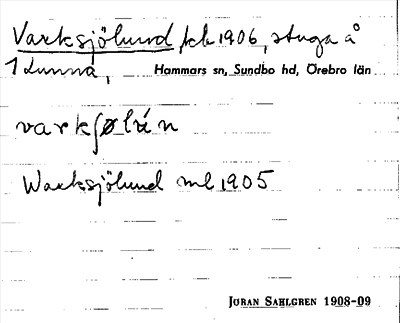 Varksjölund, kb 1906, stuga å
1 Lunna, Hammars sn, Sundbo hd, Örebro län
varkʃølún
Warksjölund ml 1905
JÖRAN SAHLGREN 1908-09